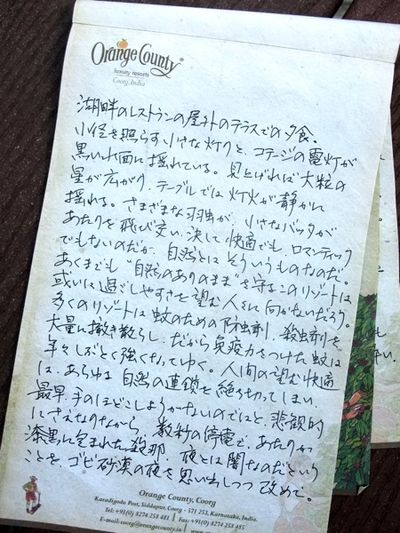 Orange County
luxury resorts
Coorg, India
湖畔のレストランの屋外のテラスでの夕食.
小径を照らす小さな灯りと、コテージの電灯が
黒い水面に揺れている. 見上げれば大粒の
星が広がり、テーブルでは灯火が静かに
揺れる. さまざまな羽虫が、小さなバッタが
あたりを飛び交い、決して快適でも、ロマンティック
でもないのだが、自然とはそういうものなのだ.
あくまでも"自然のありのまま"を守るこのリゾートは
或いは過ごしやすさを望む人々に向かないだろう.
多くのリゾートは蚊のための防虫剤、殺虫剤を
大量に撒き散らし、だから免疫力をつけた蚊は
年々しぶとく強くなってゆく. 人間の望む快適
は、あらゆる自然の連鎖を絶ち切ってしまい
最早、手のほどこしようがないのではと、悲観的
にさえなりながら、数秒の停電で、あたりが
漆黒に包まれた刹那、夜とは闇なのだという
ことを、ゴビ砂漠の夜を思い出しつつ 改めて.
Orange County, Coorg
Karadigodu Post, Siddapur, Coorg - 571 253, Karnataka, India.
Tel: +91(0) 8274 258 481 Fax: +91(0) 8274 258 485
E-mail: coorg@orangecounty.in